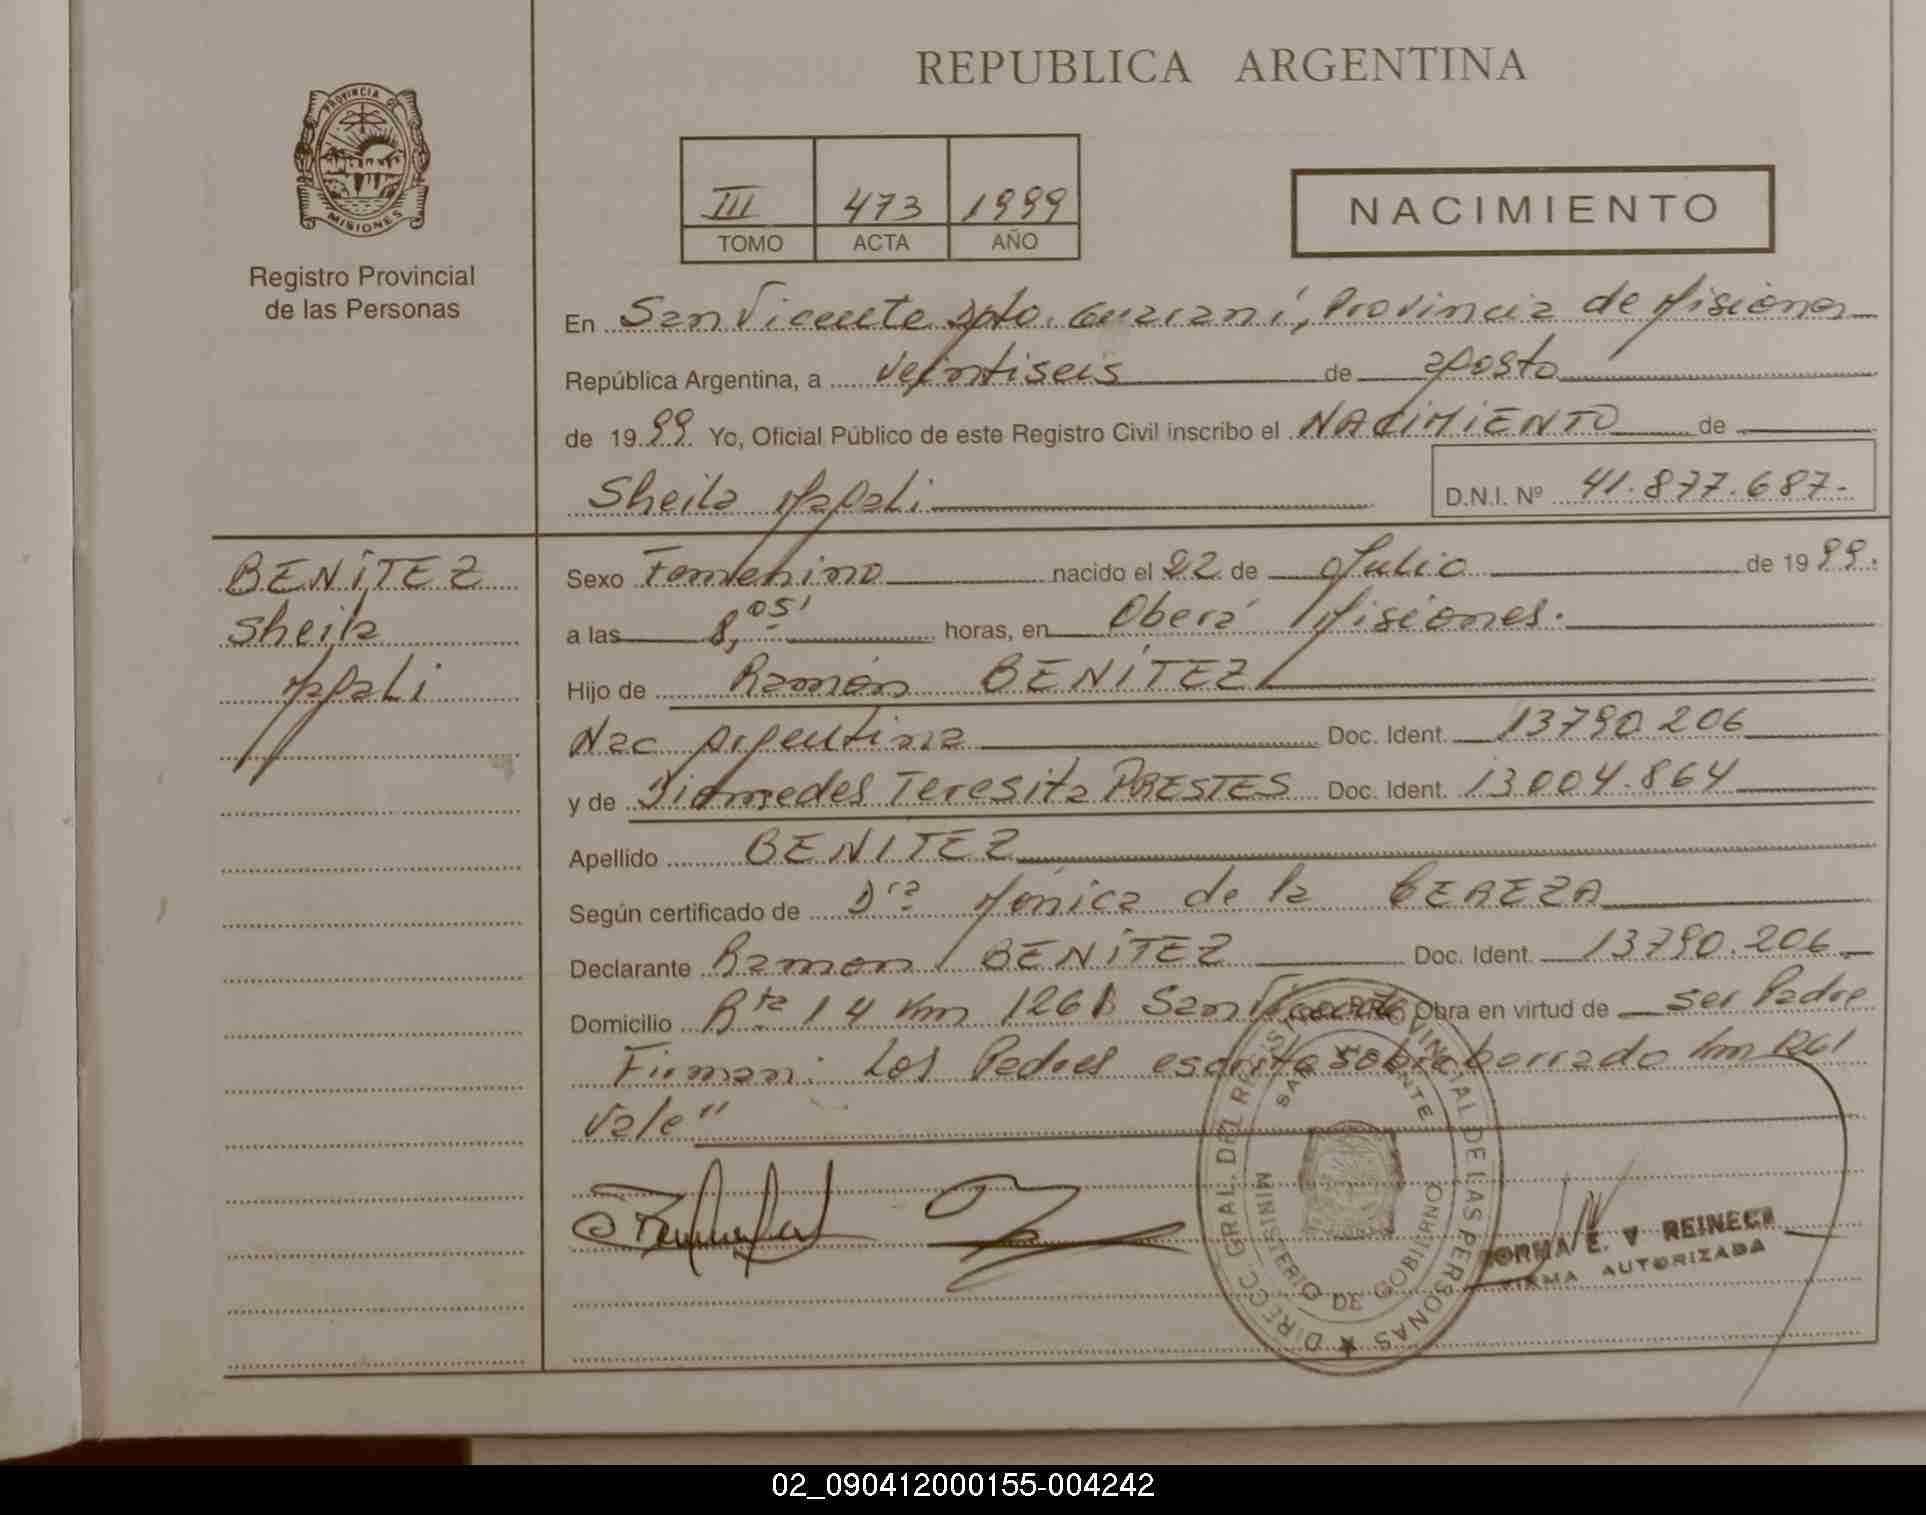 REPUBLICA ARGENTINA
PROVINCIA DE
MISIONES
Registro Provincial
de las Personas
III 473 1999
TOMO ACTA AÑO
NACIMIENTO
En San Vicente Dpto. Guaraní, Provincia de Misiones
República Argentina, a veintiseis de agosto
de 1999 Yo, Oficial Público de este Registro Civil inscribo el NACIMIENTO de
Sheila Magali D.N.I. Nº 41.877.687.-
BENÍTEZ
Sheila
Magali
Sexo Femenino nacido el 22 de Julio de 1999.
a las 8,05' horas, en Oberá Misiones.
Hijo de Ramón BENÍTEZ
Nac Argentina Doc. Ident. 13790.206
y de Diomedes Teresita PRESTES Doc. Ident. 13.004.864
Apellido BENITEZ
Según certificado de Dra Mónica de la CEREZA
Declarante Ramon BENÍTEZ Doc. Ident. 13790.206
Domicilio Rta 14 Km 1261 San Vicente Obra en virtud de ser Padre
Firman: Los Padres escrito sobreborrado km 1261
Vale"
DIRECC. GRAL. DEL REGISTRO PROVINCIAL DE LAS PERSONAS
SAN VICENTE
MINISTERIO DE GOBIERNO
NORMA E. V REINECK
FIRMA AUTORIZADA
02_090412000155-004242